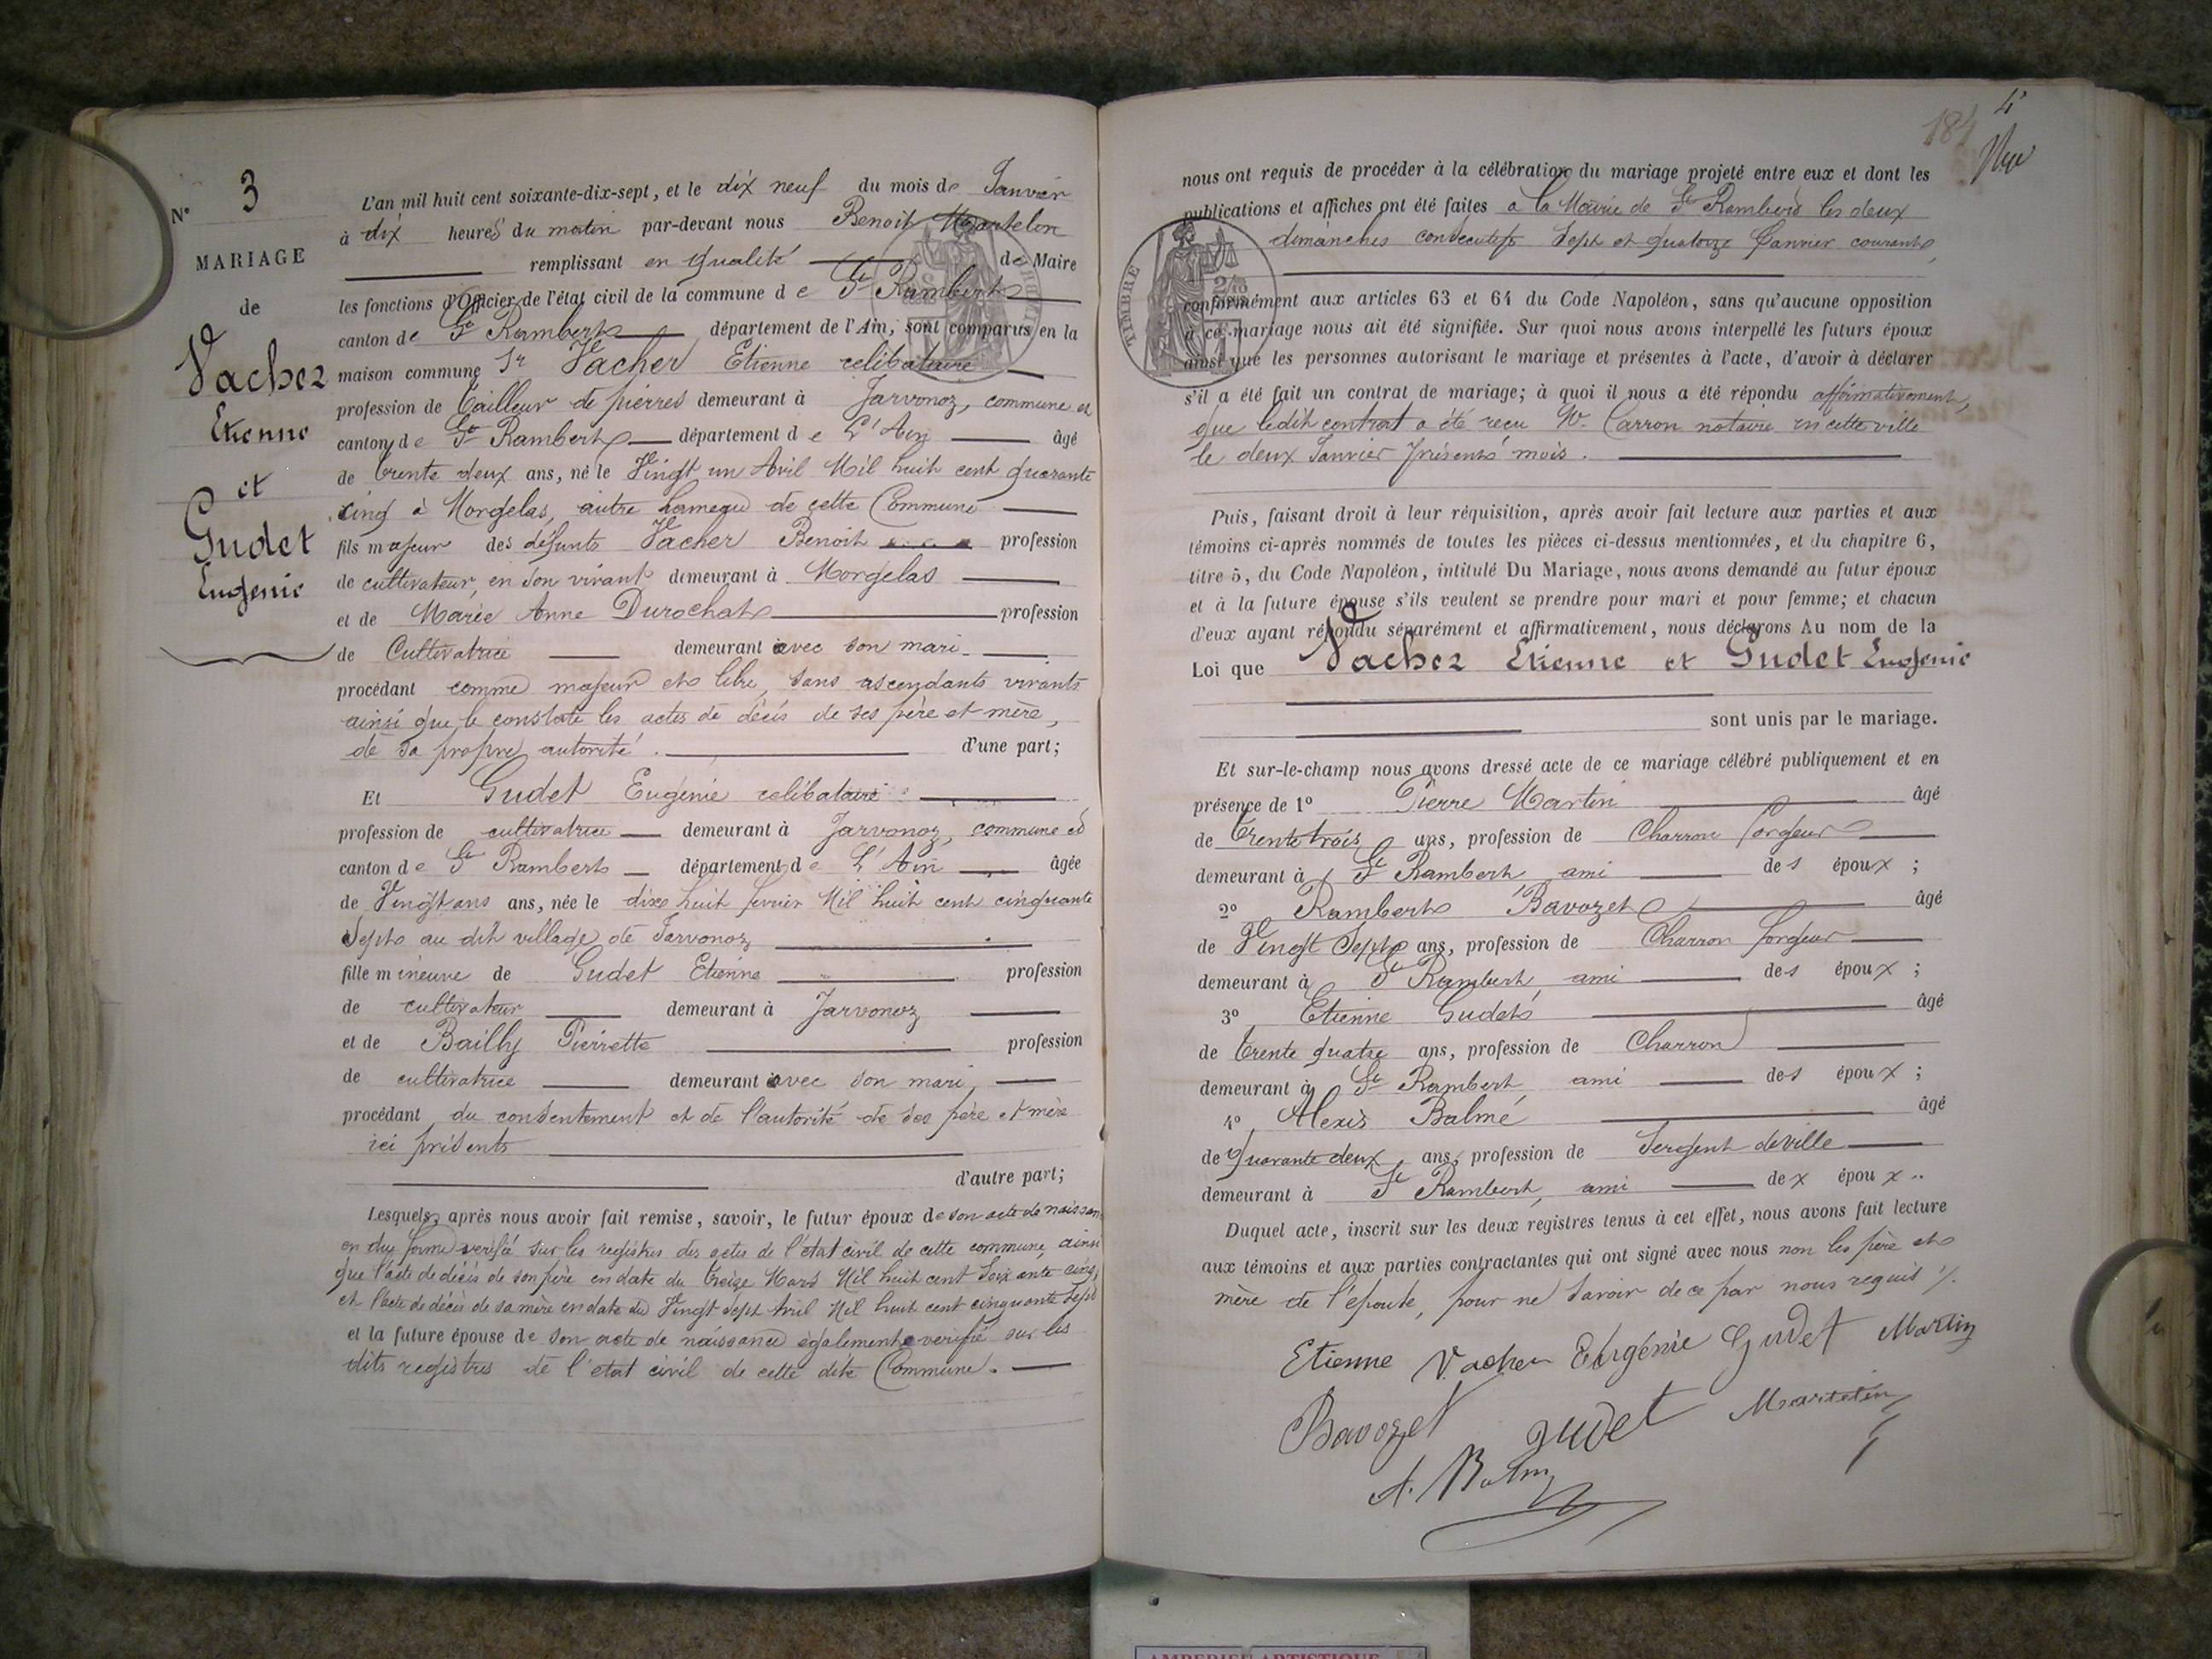 N° 3
MARIAGE
de
Vacher
Etienne
et
Gudet
Eugenie
L'an mil huit cent soixante-dix-sept, et le dix neuf du mois de Janvier
à dix heures du matin par-devant nous Benoit Martelon
remplissant en qualité de Maire
les fonctions d'Officier de l'état civil de la commune de St Rambert
canton de St Rambert département de l'Ain, sont comparus en la
maison commune Sr Vacher Etienne celibataire
profession de Tailleur de pierres demeurant à Jarvonoz, commune et
canton de St Rambert département de L'Ain âgé
de trente deux ans, né le Vingt un Avil Mil huit cent quarante
cinq à Morgelas, autre hameau de cette Commune
fils majeur des défunts Vacher Benoit profession
de cultivateur, en son vivant demeurant à Morgelas
et de Marie Anne Durochat profession
de Cultivatrice demeurant avec son mari
procédant comme majeur et libre, sans ascendants vivants
ainsi que le constate les actes de décès de ses père et mère,
de sa propre autorité. d'une part;
Et Gudet Eugénie celibataire
profession de cultivatrice demeurant à Jarvonoz, commune et
canton de St Rambert département de L'Ain âgée
de Vingt ans ans, née le dix huit fevrier Mil huit cent cinquante
Sept au dit village de Jarvonoz
fille mineure de Gudet Etienne profession
de cultivateur demeurant à Jarvonoz
et de Bailly Pierrette profession
de cultivatrice demeurant avec son mari,
procédant du consentement et de l'autorité de ses père et mère
ici présents
d'autre part;
Lesquels, après nous avoir fait remise, savoir, le futur époux de son acte de naissance
en due forme verifié sur les registres des actes de l'état civil de cette commune, ainsi
que l'acte de décès de son père en date du treize Mars Mil huit cent soixante cinq,
et l'acte de décès de sa mère en date du Vingt sept Avril Mil huit cent cinquante sept
et la future épouse de son acte de naissance également verifié sur les
dits registres de l'etat civil de cette dite Commune.
184 4
nous ont requis de procéder à la célébration du mariage projeté entre eux et dont les
publications et affiches ont été faites à la Mairie de St Rambert les deux
dimanches consecutifs Sept et quatorze Janvier courant,
TIMBRE
conformément aux articles 63 et 64 du Code Napoléon, sans qu'aucune opposition
à ce mariage nous ait été signifiée. Sur quoi nous avons interpellé les futurs époux
ainsi que les personnes autorisant le mariage et présentes à l'acte, d'avoir à déclarer
s'il a été fait un contrat de mariage; à quoi il nous a été répondu affirmativement,
que ledit contrat a été reçu Me Carron notaire en cette ville
le deux Janvier présent mois.
Puis, faisant droit à leur réquisition, après avoir fait lecture aux parties et aux
témoins ci-après nommés de toutes les pièces ci-dessus mentionnées, et du chapitre 6,
titre 5, du Code Napoléon, intitulé Du Mariage, nous avons demandé au futur époux
et à la future épouse s'ils veulent se prendre pour mari et pour femme; et chacun
d'eux ayant répondu séparément et affirmativement, nous déclarons Au nom de la
Loi que Vacher Etienne et Gudet Eugenie
sont unis par le mariage.
Et sur-le-champ nous avons dressé acte de ce mariage célébré publiquement et en
présence de 1° Pierre Martin âgé
de trente trois ans, profession de Charron forgeur
demeurant à St Rambert ami des époux ;
2° Rambert Bavozet âgé
de Vingt Sept ans, profession de Charron forgeur
demeurant à St Rambert, ami des époux ;
3° Etienne Gudet âgé
de trente quatre ans, profession de Charron
demeurant à St Rambert ami des époux ;
4° Alexis Balmé âgé
de Quarante deux ans, profession de Sergent de ville
demeurant à St Rambert, ami de x époux
Duquel acte, inscrit sur les deux registres tenus à cet effet, nous avons fait lecture
aux témoins et aux parties contractantes qui ont signé avec nous non les père et
mère de l'épouse, pour ne savoir de ce par nous requis
Etienne Vacher Eugénie Gudet Martin
Bavozet Gudet
A. Balm
AMBERIEU ARTISTIQUE